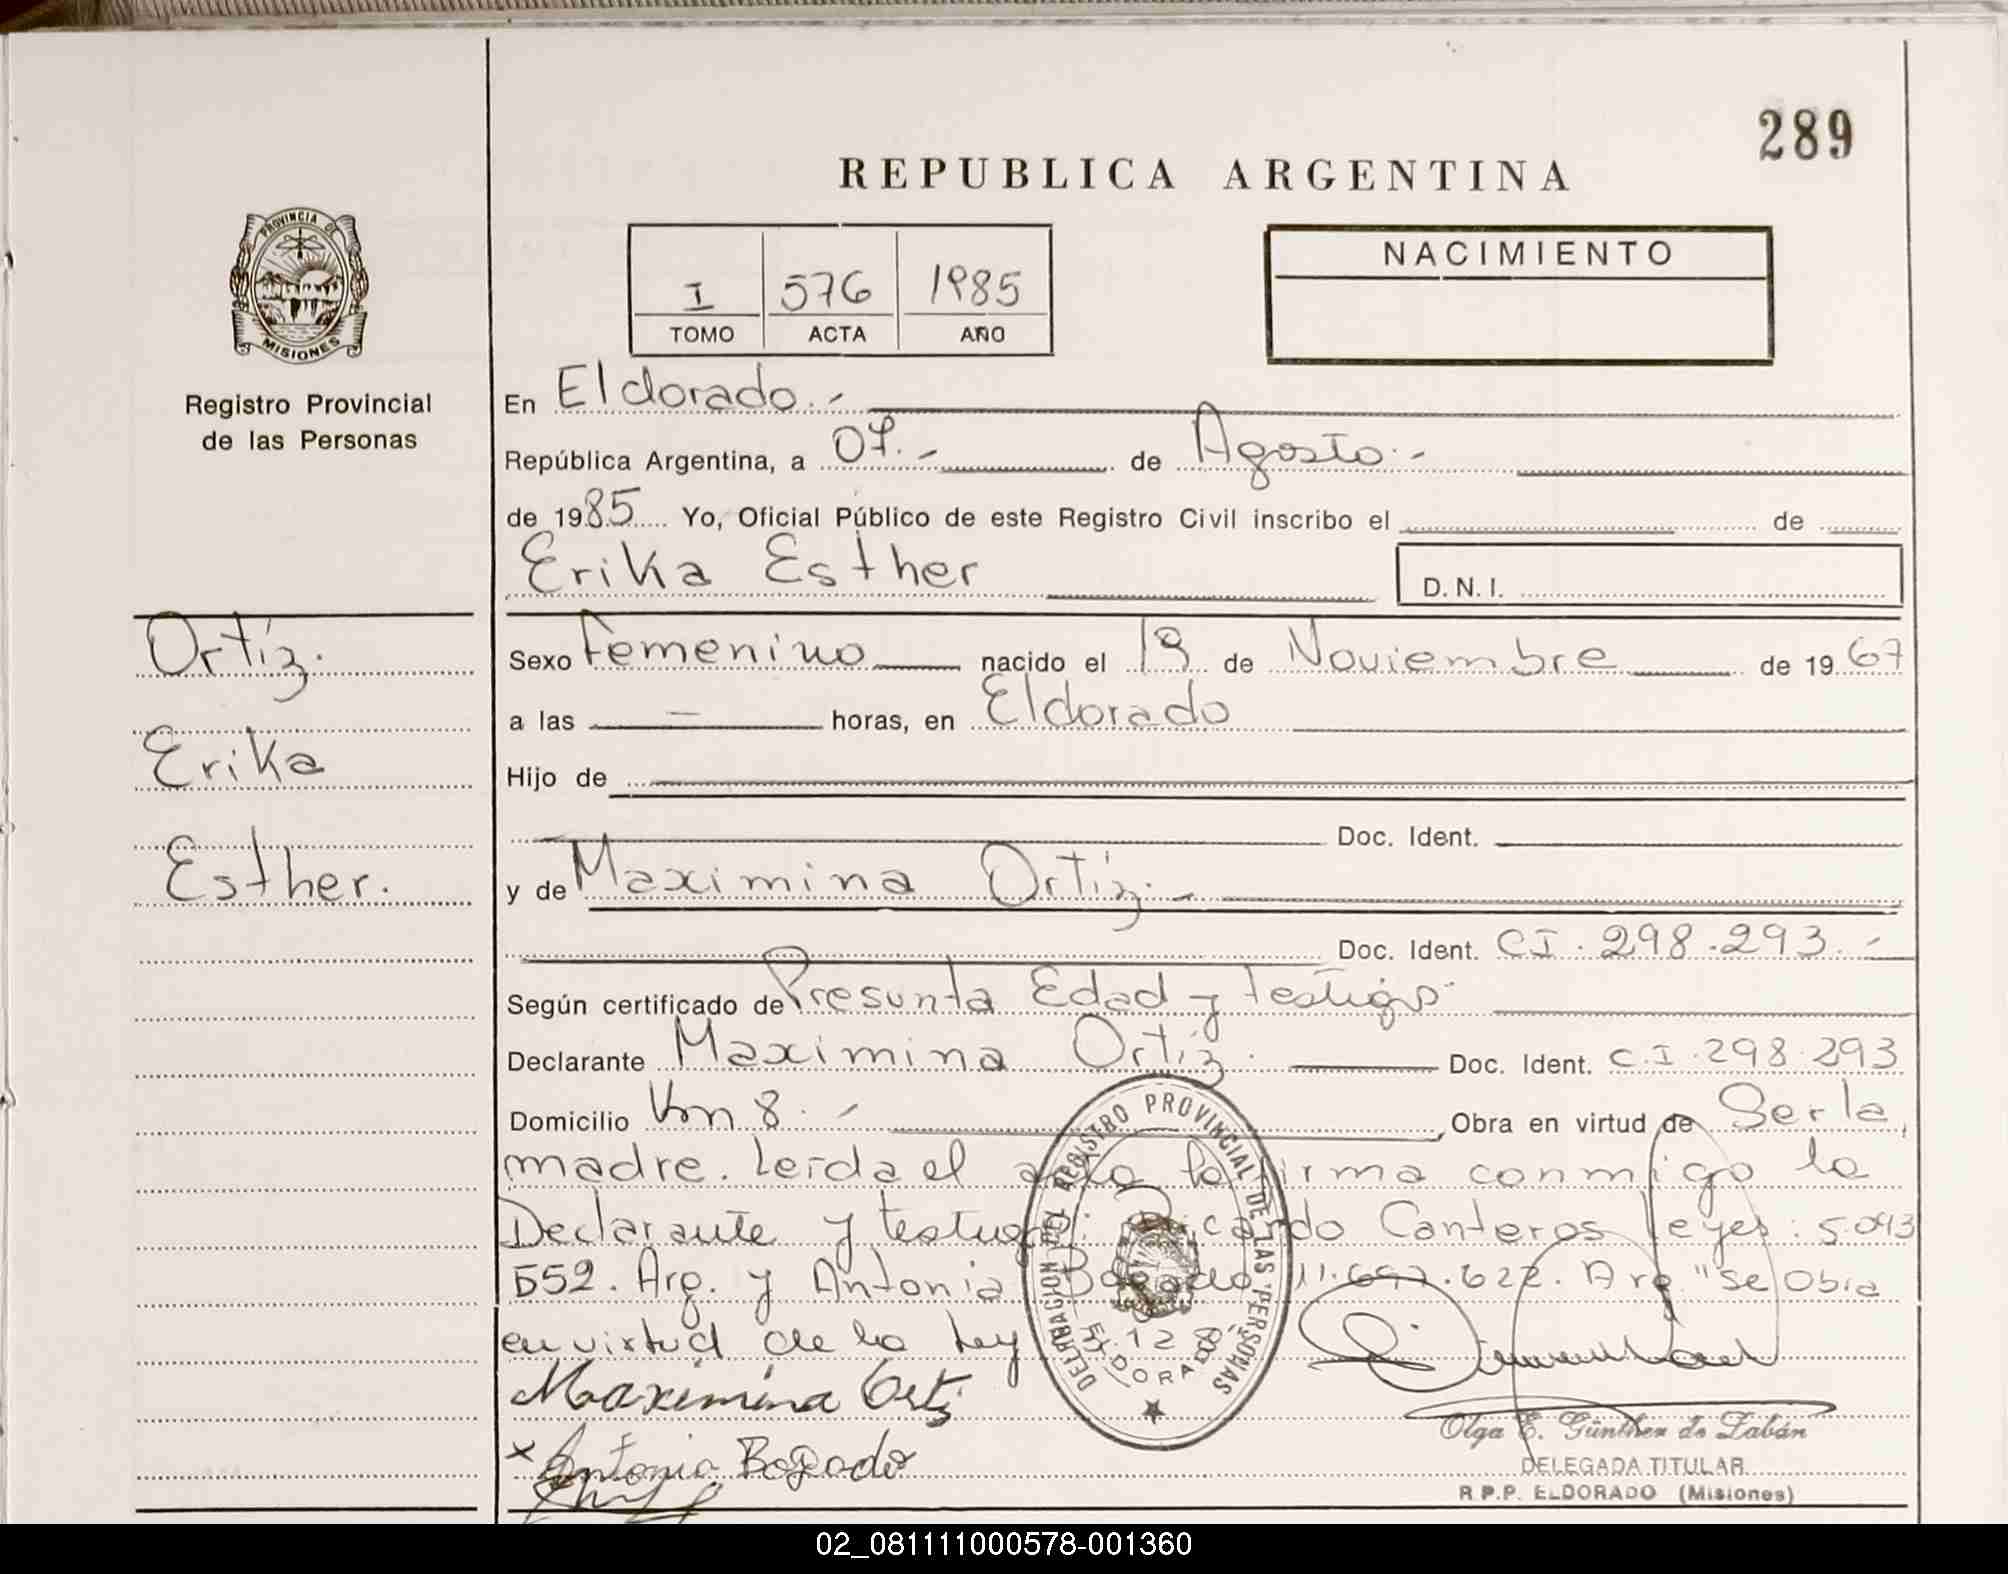 289
REPUBLICA ARGENTINA
PROVINCIA DE
MISIONES
I 576 1985
TOMO ACTA AÑO
NACIMIENTO
Registro Provincial
de las Personas
En Eldorado.-
República Argentina, a 07.- de Agosto.-
de 1985 Yo, Oficial Público de este Registro Civil inscribo el de
Erika Esther D.N.I.
Ortíz.
Erika
Esther.
Sexo Femenino nacido el 19 de Noviembre de 1967
a las — horas, en Eldorado
Hijo de
Doc. Ident.
y de Maximina Ortíz.-
Doc. Ident. CI.298.293.-
Según certificado de Presunta Edad y testigos
Declarante Maximina Ortíz. Doc. Ident. C.I.298.293
Domicilio Km 8.- , Obra en virtud de Ser la,
madre. Leída el acta la firma conmigo la
Declarante y testigos: Ricardo Canteros Leyes: 5.093
552. Arg. y Antonia Bogado 11.697.622. Arg. "Se Obra
en virtud de la Ley
DELEGACION REGISTRO PROVINCIAL DE LAS PERSONAS
ELDORADO
Maximina Ortiz
x Antonia Bogado
Olga E. Günther de Zabán
DELEGADA TITULAR
R.P.P. ELDORADO (Misiones)
02_081111000578-001360